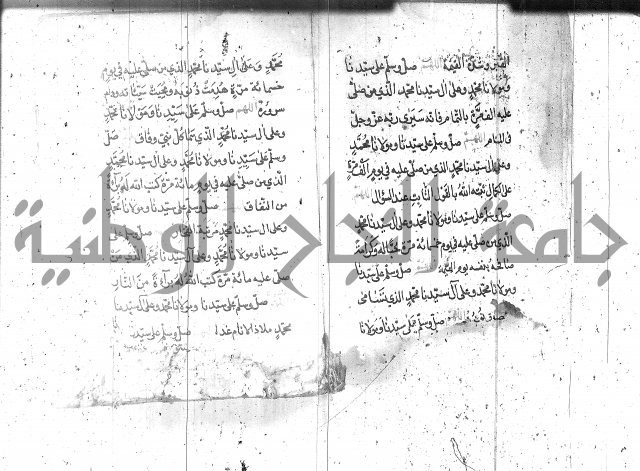 القبر وشدة القيمة اللهم صل وسلم على سيدنا
ومولانا محمد وعلى آل سيدنا محمد الذي من صلى
عليه الف مرة بالتمام فانه سيرى ربه عز وجل
في المنام اللهم صل وسلم على سيدنا ومولانا محمد
وعلى آل سيدنا محمد الذي من صلى عليه في يوم الف مرة
على الكمال ثبته الله بالقول الثابت عند السؤال
صل وسلم على سيدنا ومولانا محمد وعلى آل سيدنا محمد
الذي من صلى عليه في يوم خمسمائة مرة
صافحه بنفسه يوم القيمة اللهم صل وسلم على سيدنا
ومولانا محمد وعلى آل سيدنا محمد الذي
اللهم صل وسلم على سيدنا ومولانا
محمد وعلى آل سيدنا محمد الذي من صلى عليه في يوم
خمسمائة مرة هدمت ذنوبه ومحيت سيئاته ودوم
سروره اللهم صل وسلم على سيدنا ومولانا محمد
وعلى آل سيدنا محمد الذي بماكل شيء وفاق صل
وسلم على سيدنا ومولانا محمد وعلى آل سيدنا محمد
الذي من صلى عليه في يوم مائة مرة كتب الله له براءة
من النفاق صل وسلم على سيدنا ومولانا محمد
وعلى آل سيدنا محمد صل وسلم على
سيدنا ومولانا محمد وعلى آل سيدنا محمد الذي من
صلى عليه مائة مرة كتب الله له براءة من النار
صل وسلم على سيدنا ومولانا محمد وعلى آل سيدنا
محمد ملاذ الانام غدا صل وسلم على سيدنا
جامعة النجاح الوطنية